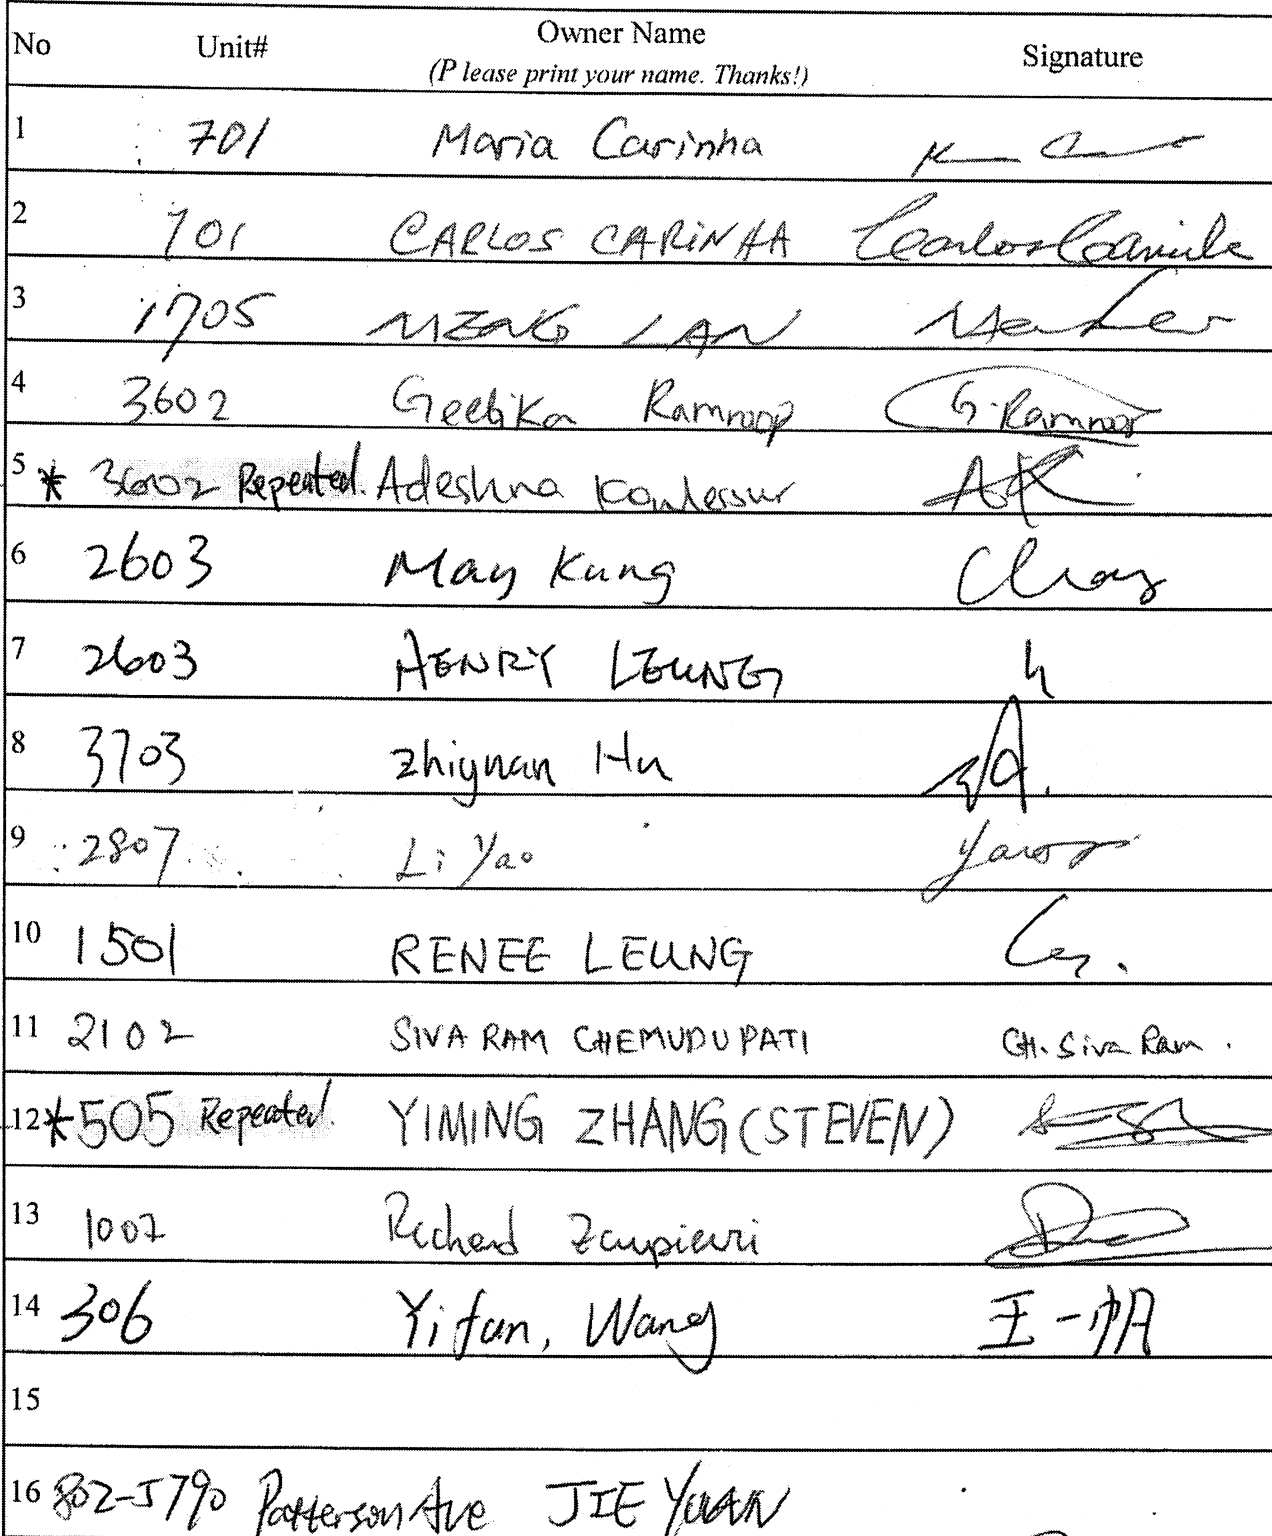 No Unit# Owner Name Signature
(P lease print your name. Thanks!)
1 701 Maria Carinha
2 701 CARLOS CARINHA Carlos Carinha
3 1705 MENG LAN
4 3602 Geetika Ramroop G. Ramroop
5 * 3602 Repeated. Adeshna AK
6 2603 May Kung
7 2603 HENRY LEUNG
8 3703 Zhiynan Hu
9 2807 Li Yao
10 1501 RENEE LEUNG
11 2102 SIVA RAM CHEMUDUPATI CH. Siva Ram.
12 * 505 Repeated. YIMING ZHANG (STEVEN)
13 1007 Richard
14 306 Yifan, Wang 王一帆
15
16 802-5790 Patterson Ave JIE YUAN